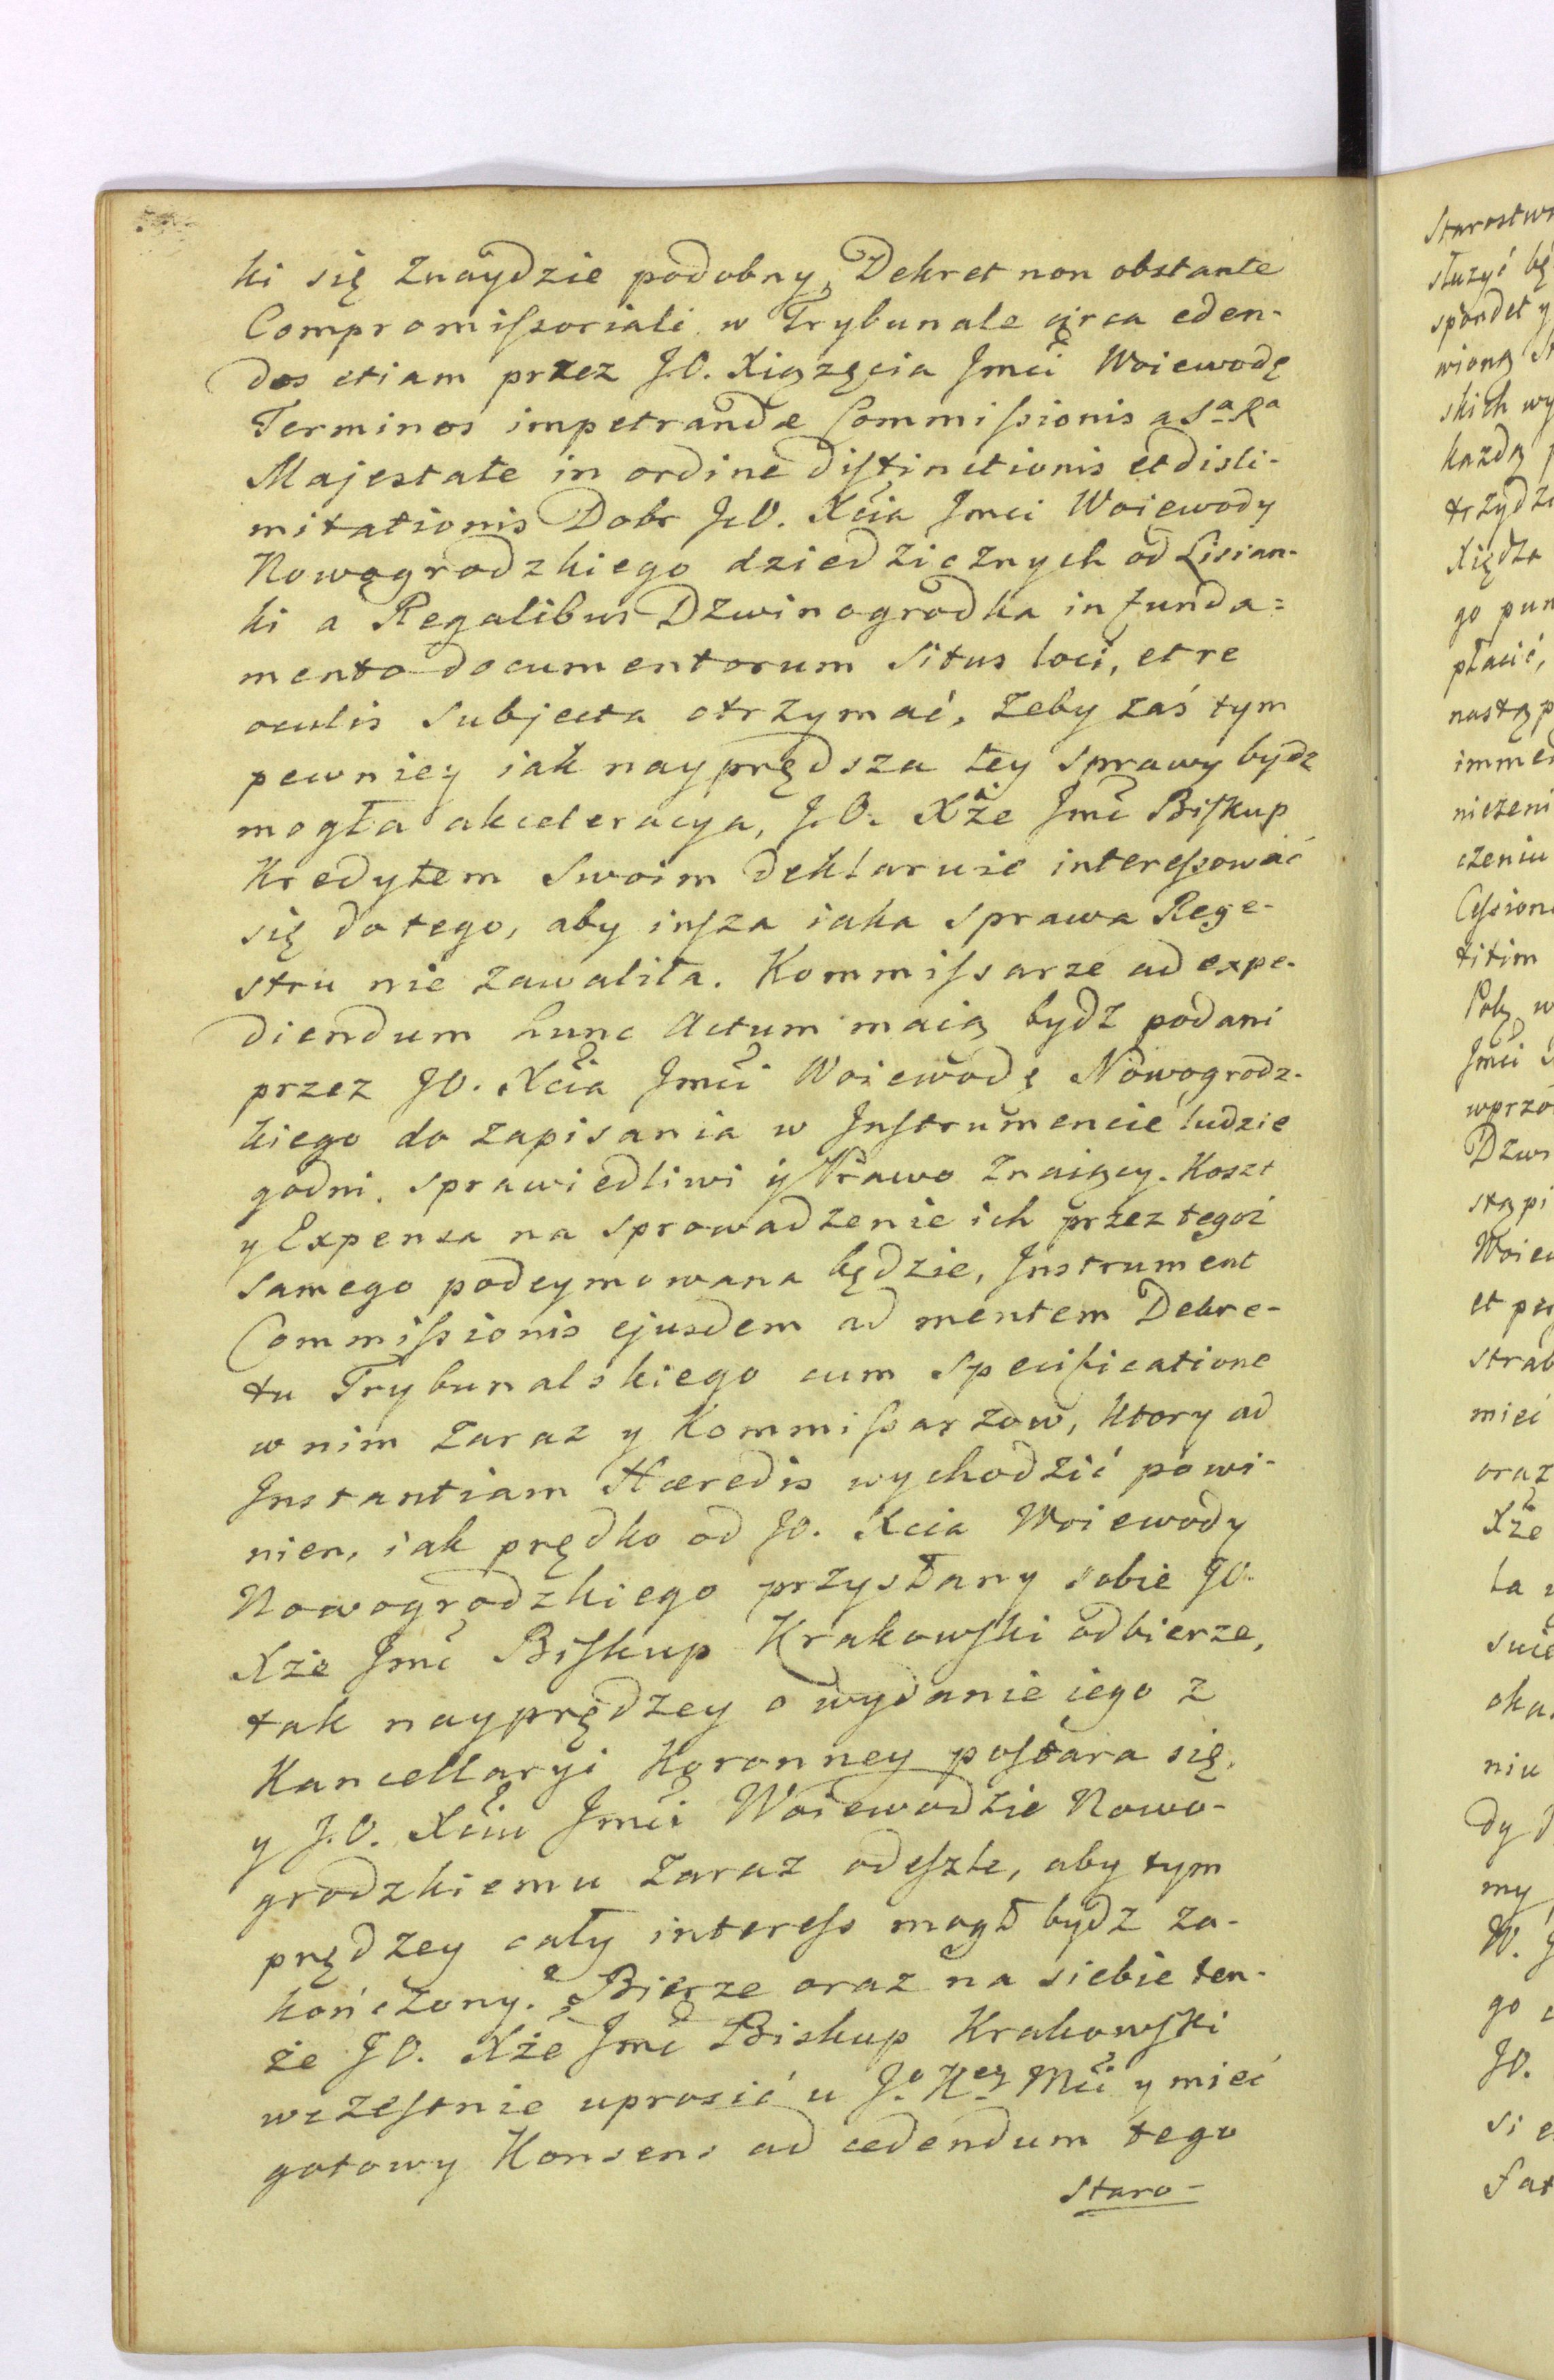 ki się znaydzie podobny, Dekret non obstante
Compromissoriali w Trybunale circa eden-
dos etiam przez J.O. Xiążęcia Jmci Woiewodę
Terminos impetrandæ Commissionis a Sa Ra
Majestate in ordine distinctionis et disli-
mitationis Dobr J.O. Xcia Jmci Woiewody
Nowogrodzkiego dziedzicznych od Lisian-
ki a Regalibus Dzwinogrodka in funda=
mento documentorum situs loci, et re
oculis subjecta otrzymać, żeby zaś tym
pewniey iak nayprędsza tey sprawy bydź
mogła akceleracya, J.O. Xże Jmć Biskup
Kredytem swoim deklaruie interessować
się do tego, aby insza iaka sprawa Rege-
stru nie zawaliła. Kommissarze ad expe-
diendum hunc Actum maią bydź podani
przez JO. Xcia Jmci Woiewodę Nowogrodz-
kiego do zapisania w Instrumencie ludzie
godni, sprawiedliwi y Prawo znaiący. Koszt
y Expensa na sprowadzenie ich przez tegoż
samego podeymowana będzie, Instrument
Commissionis ejusdem ad mentem Dekre-
tu Trybunalskiego cum specificatione
w nim zaraz y Kommissarzow, ktory ad
Instantiam Hæredis wychodzić powi-
nien, iak prędko od JO. Xcia Woiewody
Nowogrodzkiego przysłany sobie JO.
Xże Jmć Biskup Krakowski odbierze,
tak nayprędzey o wydanie iego z
Kancellaryi Koronney postara się,
y J.O. Xciu Jmci Woiewodzie Nowo-
grodzkiemu zaraz odeszle, aby tym
prędzey cały interess mogł bydź za-
kończony. Bierze oraz na siebie ten-
że JO. Xże Jmć Biskup Krakowski
wcześnie uprosić u Jo Key Mci y mieć
gotowy Konsens ad cedendum tego
Staro-
Starostw
służyć bę
spondet y
wioną
skich wy
każdą
trzydzi
Xiędza
go pun
płacić,
nastąp
immed
niczeni
czeniu
Cession
titim
Jmci
wprzo
Dzwi
stąpi
Woiew
et per
strab
mieć
oraz
Xże
ta
oka
niu
dy
my
W. J
go
JO.
si e